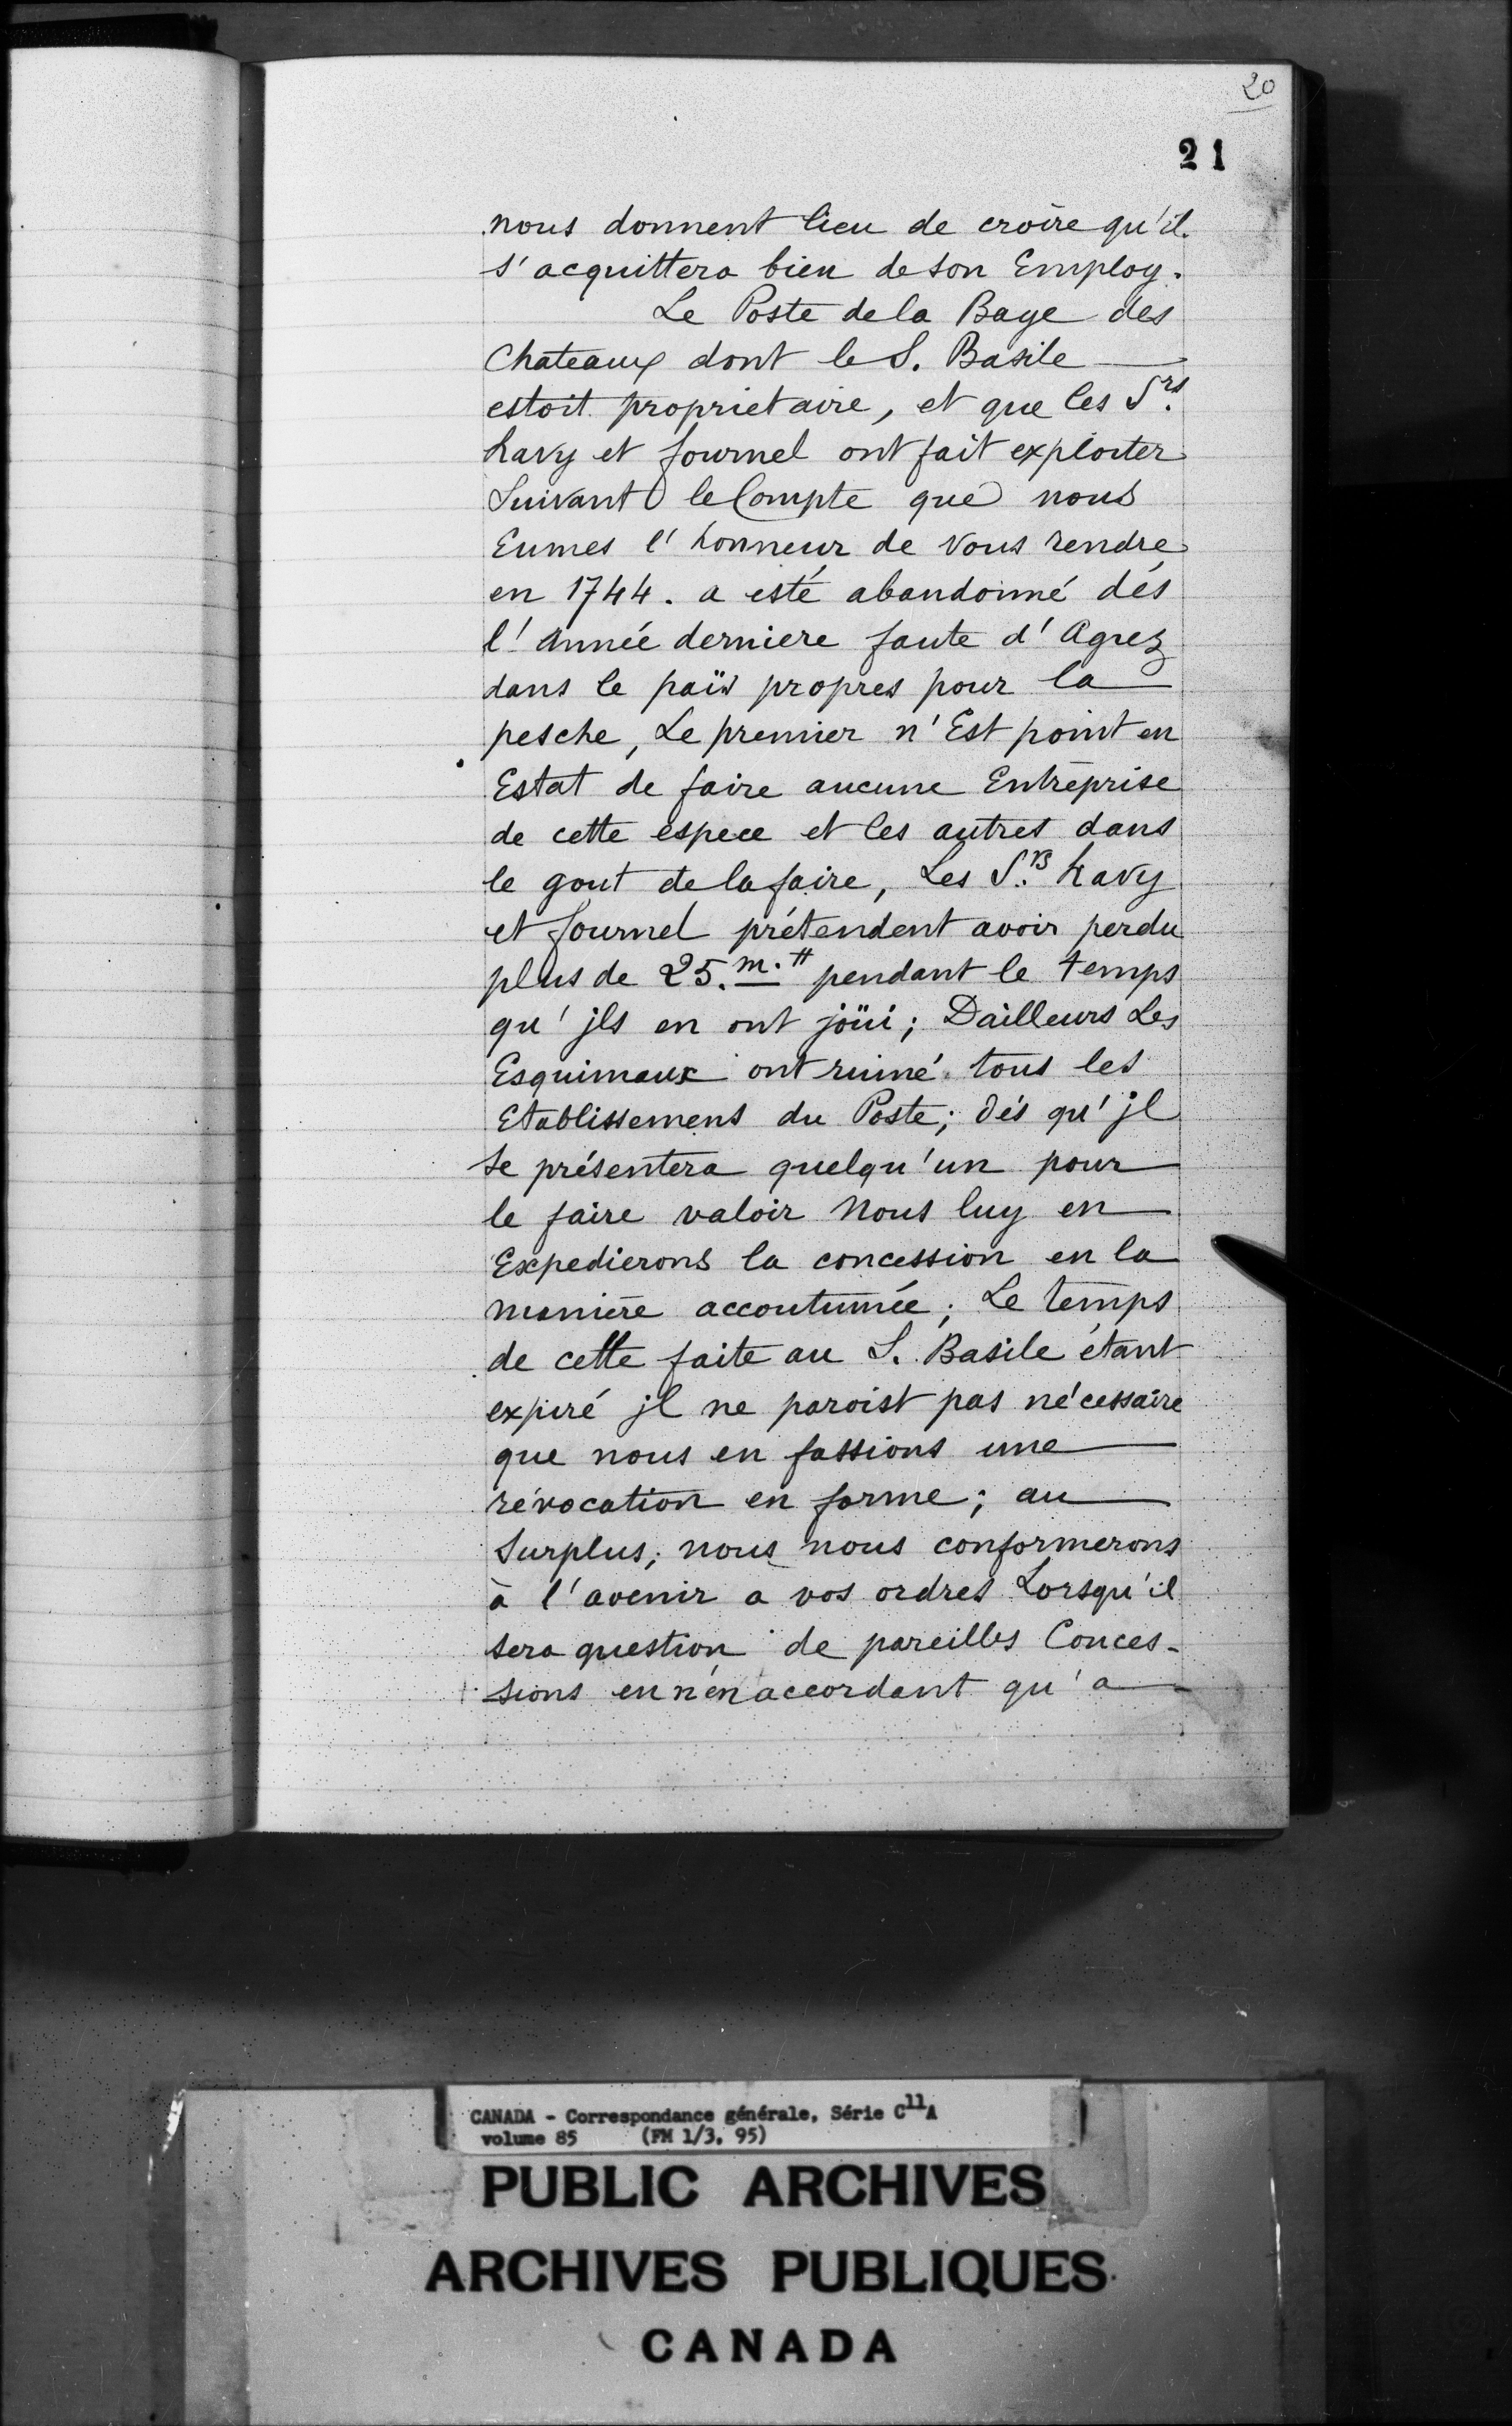 20
21
nous donnent lieu de croire qu'il
s'acquittera bien de son Employ.
Le Poste de la Baye des
Chateaux dont le S. Basile
estoit proprietaire, et que les S.rs
havy et fournel ont fait exploiter
Suivant le Compte que nous
Eumes l'honneur de vous rendre
en 1744. a esté abandonné dés
l'année derniere faute d'Agrez
dans le païs propres pour la
pesche, Le premier n'Est point en
Estat de faire aucune Entreprise
de cette espece et les autres dans
le gout de la faire, Les S.rs havy
et fournel prétendent avoir perdu
plus de 25.m.# pendant le temps
qu'jls en ont joüi; Dailleurs Les
Esquimaux ont ruiné tous les
Etablissemens du Poste; dés qu'jl
se présentera quelqu'un pour
le faire valoir Nous luy en
Expedierons la concession en la
maniere accoutumée; Le temps
de cette faite au S. Basile étant
expiré jl ne paroist pas nécessaire
que nous en fassions une
révocation en forme; au
Surplus; nous nous conformerons
à l'avenir a vos ordres Lorsqu'il
sera question de pareilles Conces-
sions en n'en accordant qu'a
CANADA - Correspondance générale, Série C11A
volume 85 (FM 1/3, 95)
PUBLIC ARCHIVES
ARCHIVES PUBLIQUES
CANADA